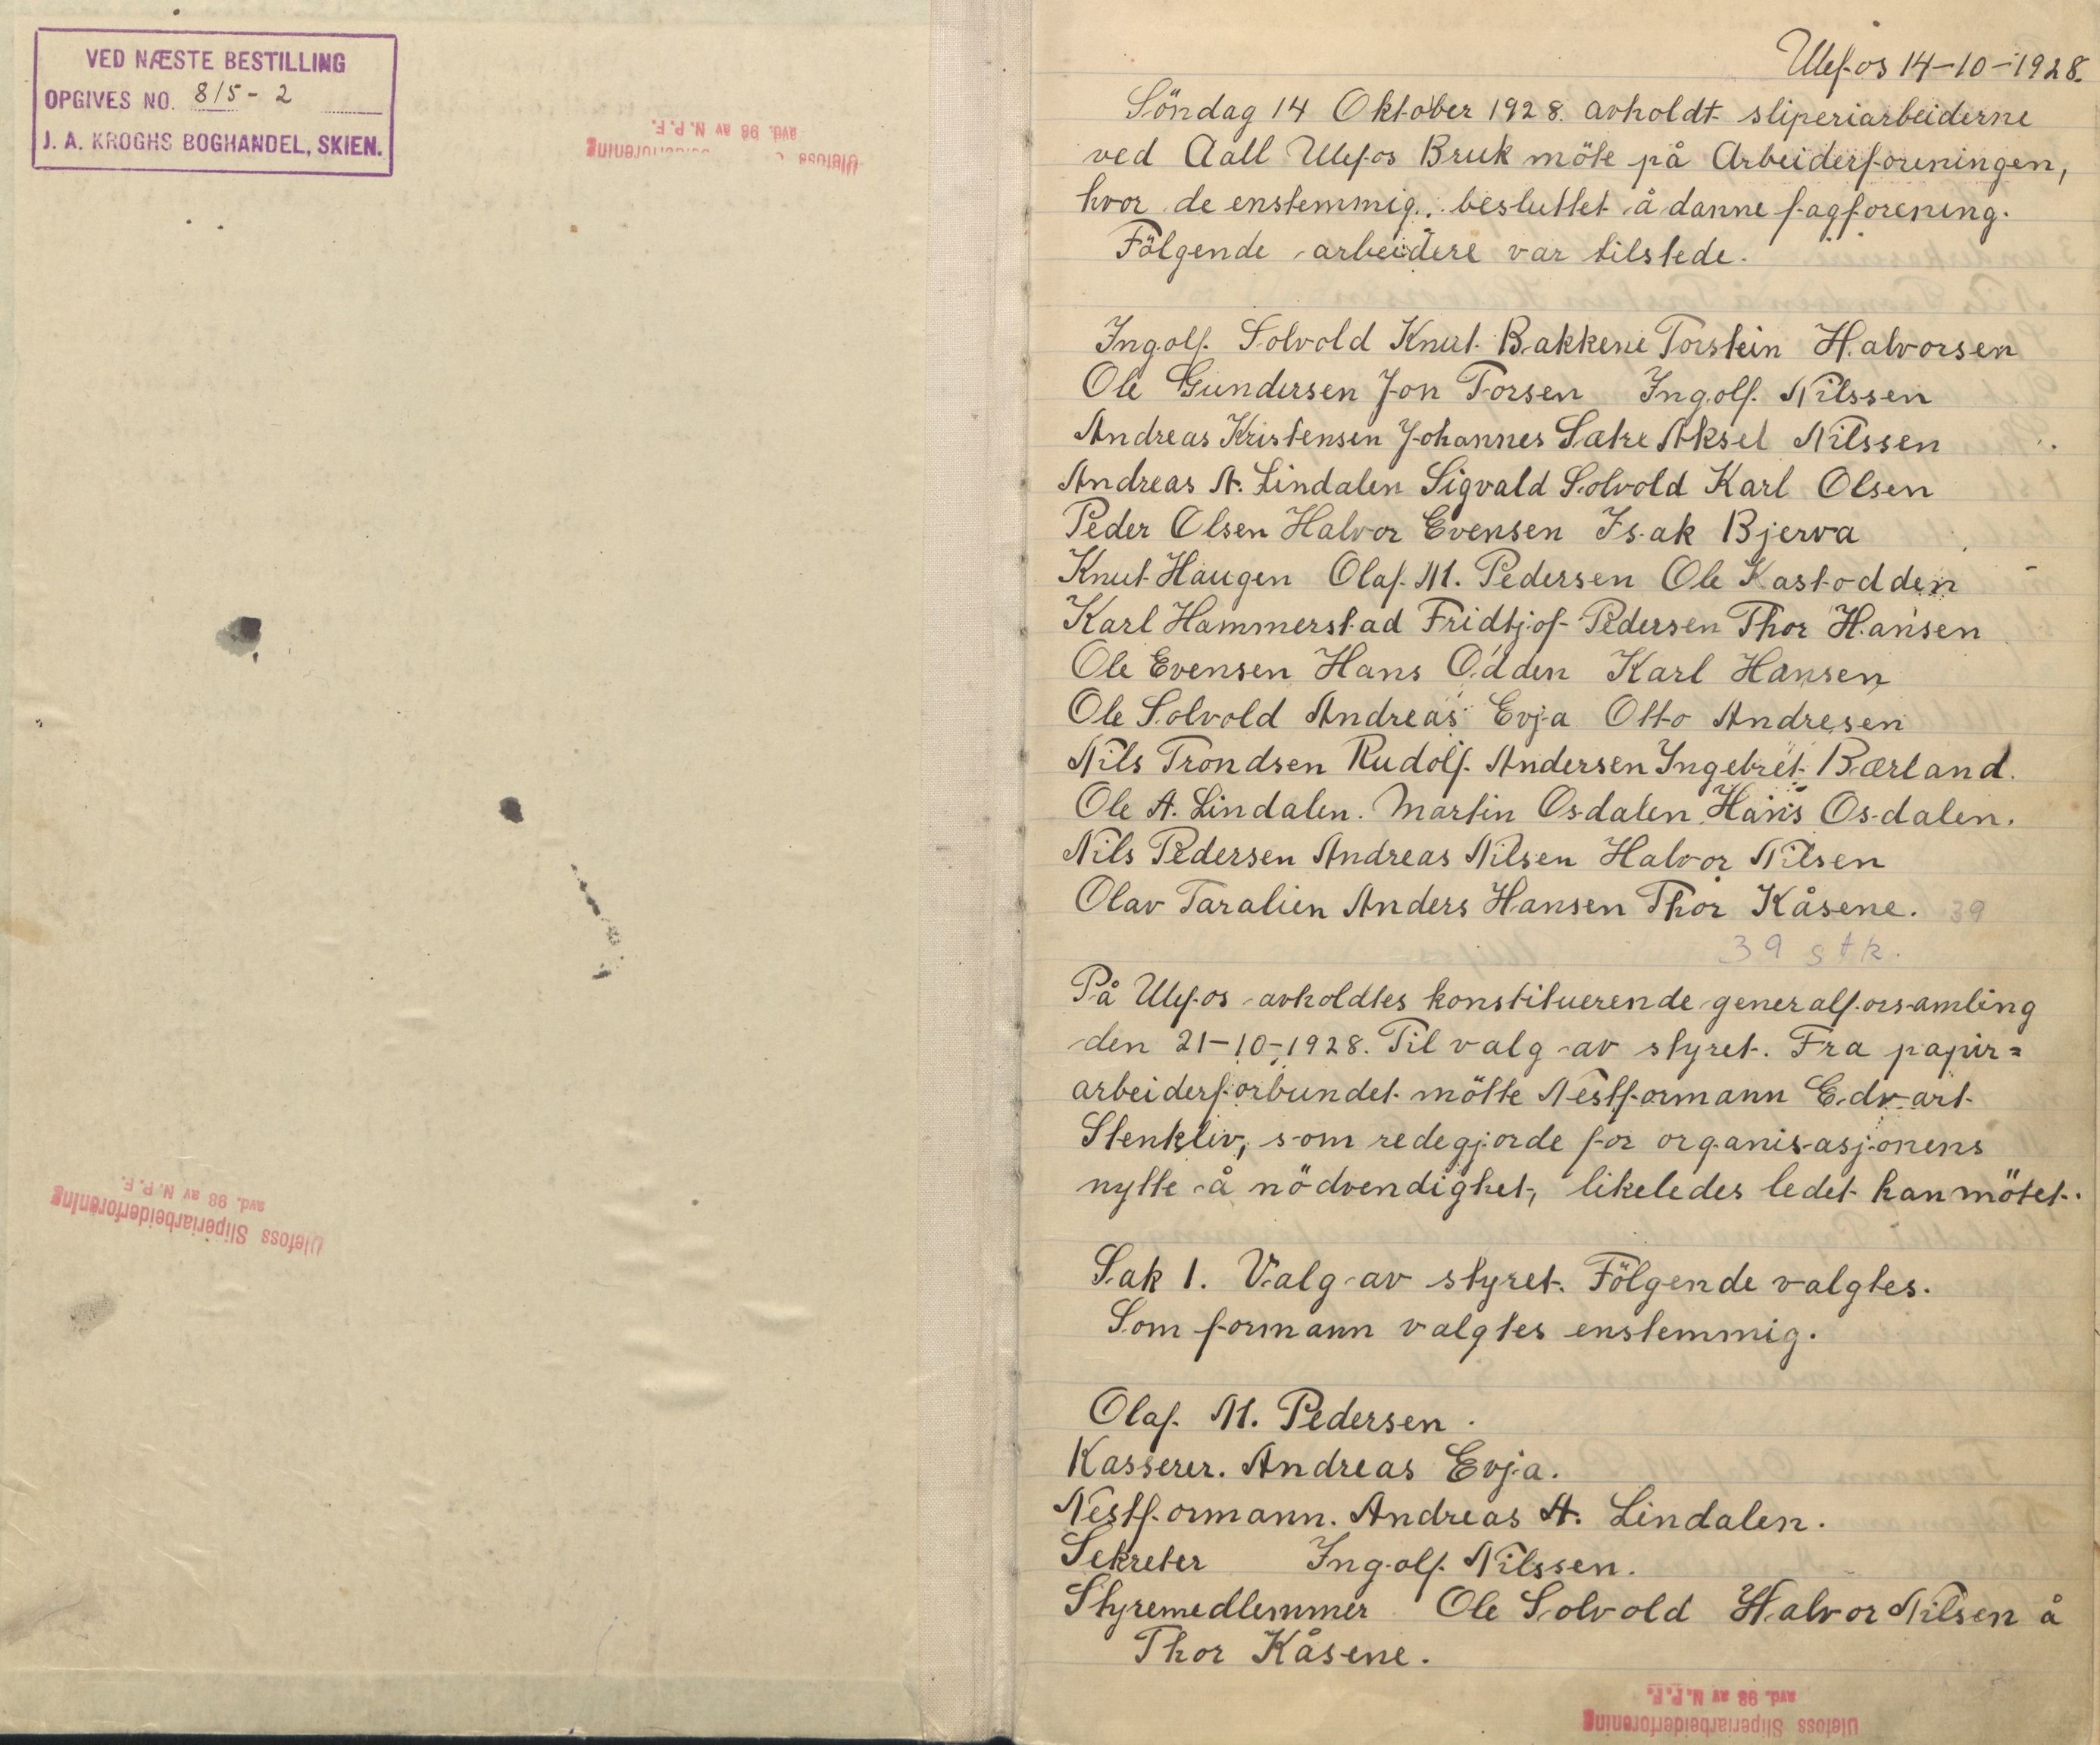 VED NÆSTE BESTILLING
OPGIVES NO. 815-2
J. A. KROGHS BOGHANDEL, SKIEN.
Ulefoss Sliperiarbeiderforening
avd. 98 av N. P. F.
Ulefos 14-10-1928.
Söndag 14 Oktober 1928. avholdt sliperiarbeiderne
ved Aall Ulefos Bruk möte på Arbeiderforeningen,
hvor de enstemmig. besluttet å danne fagforening.
Fölgende arbeidere var tilstede.
Ingolf Solvold Knut Bakkene Torstein Halvorsen
Ole Gundersen Jon Forsen Ingolf Nilssen
Andreas Kristensen Johannes Sætre Aksel Nilssen
Andreas A. Lindalen Sigvald Solvold Karl Olsen
Peder Olsen Halvor Evensen Isak Bjerva
Knut Haugen Olaf M. Pedersen Ole Kastodden
Karl Hammerstad Fridtjof Pedersen Thor Hansen
Ole Evensen Hans Odden Karl Hansen
Ole Solvold Andreas Evja Otto Andresen
Nils Trondsen Rudolf Andersen Ingebret Bærland.
Ole A. Lindalen. Martin Osdalen Hans Osdalen.
Nils Pedersen Andreas Nilsen Halvor Nilsen
Olav Taralien Anders Hansen Thor Kåsene. 39
39 stk.
På Ulefos avholdtes konstituerende generalforsamling
den 21-10-1928. Til valg av styret. Fra papir=
arbeiderforbundet mötte Nestformann Edvart
Stenkliv, som redegjorde for organisasjonens
nytte å nödvendighet, likeledes ledet han mötet.
Sak 1. Valg av styret. Fölgende valgtes.
Som formann valgtes enstemmig.
Olaf M. Pedersen.
Kasserer. Andreas Evja.
Nestformann. Andreas A. Lindalen.
Sekreter Ingolf Nilssen.
Styremedlemmer Ole Solvold Halvor Nilsen å
Thor Kåsene.
Ulefoss Sliperiarbeiderforening
avd. 98 av N. P. F.